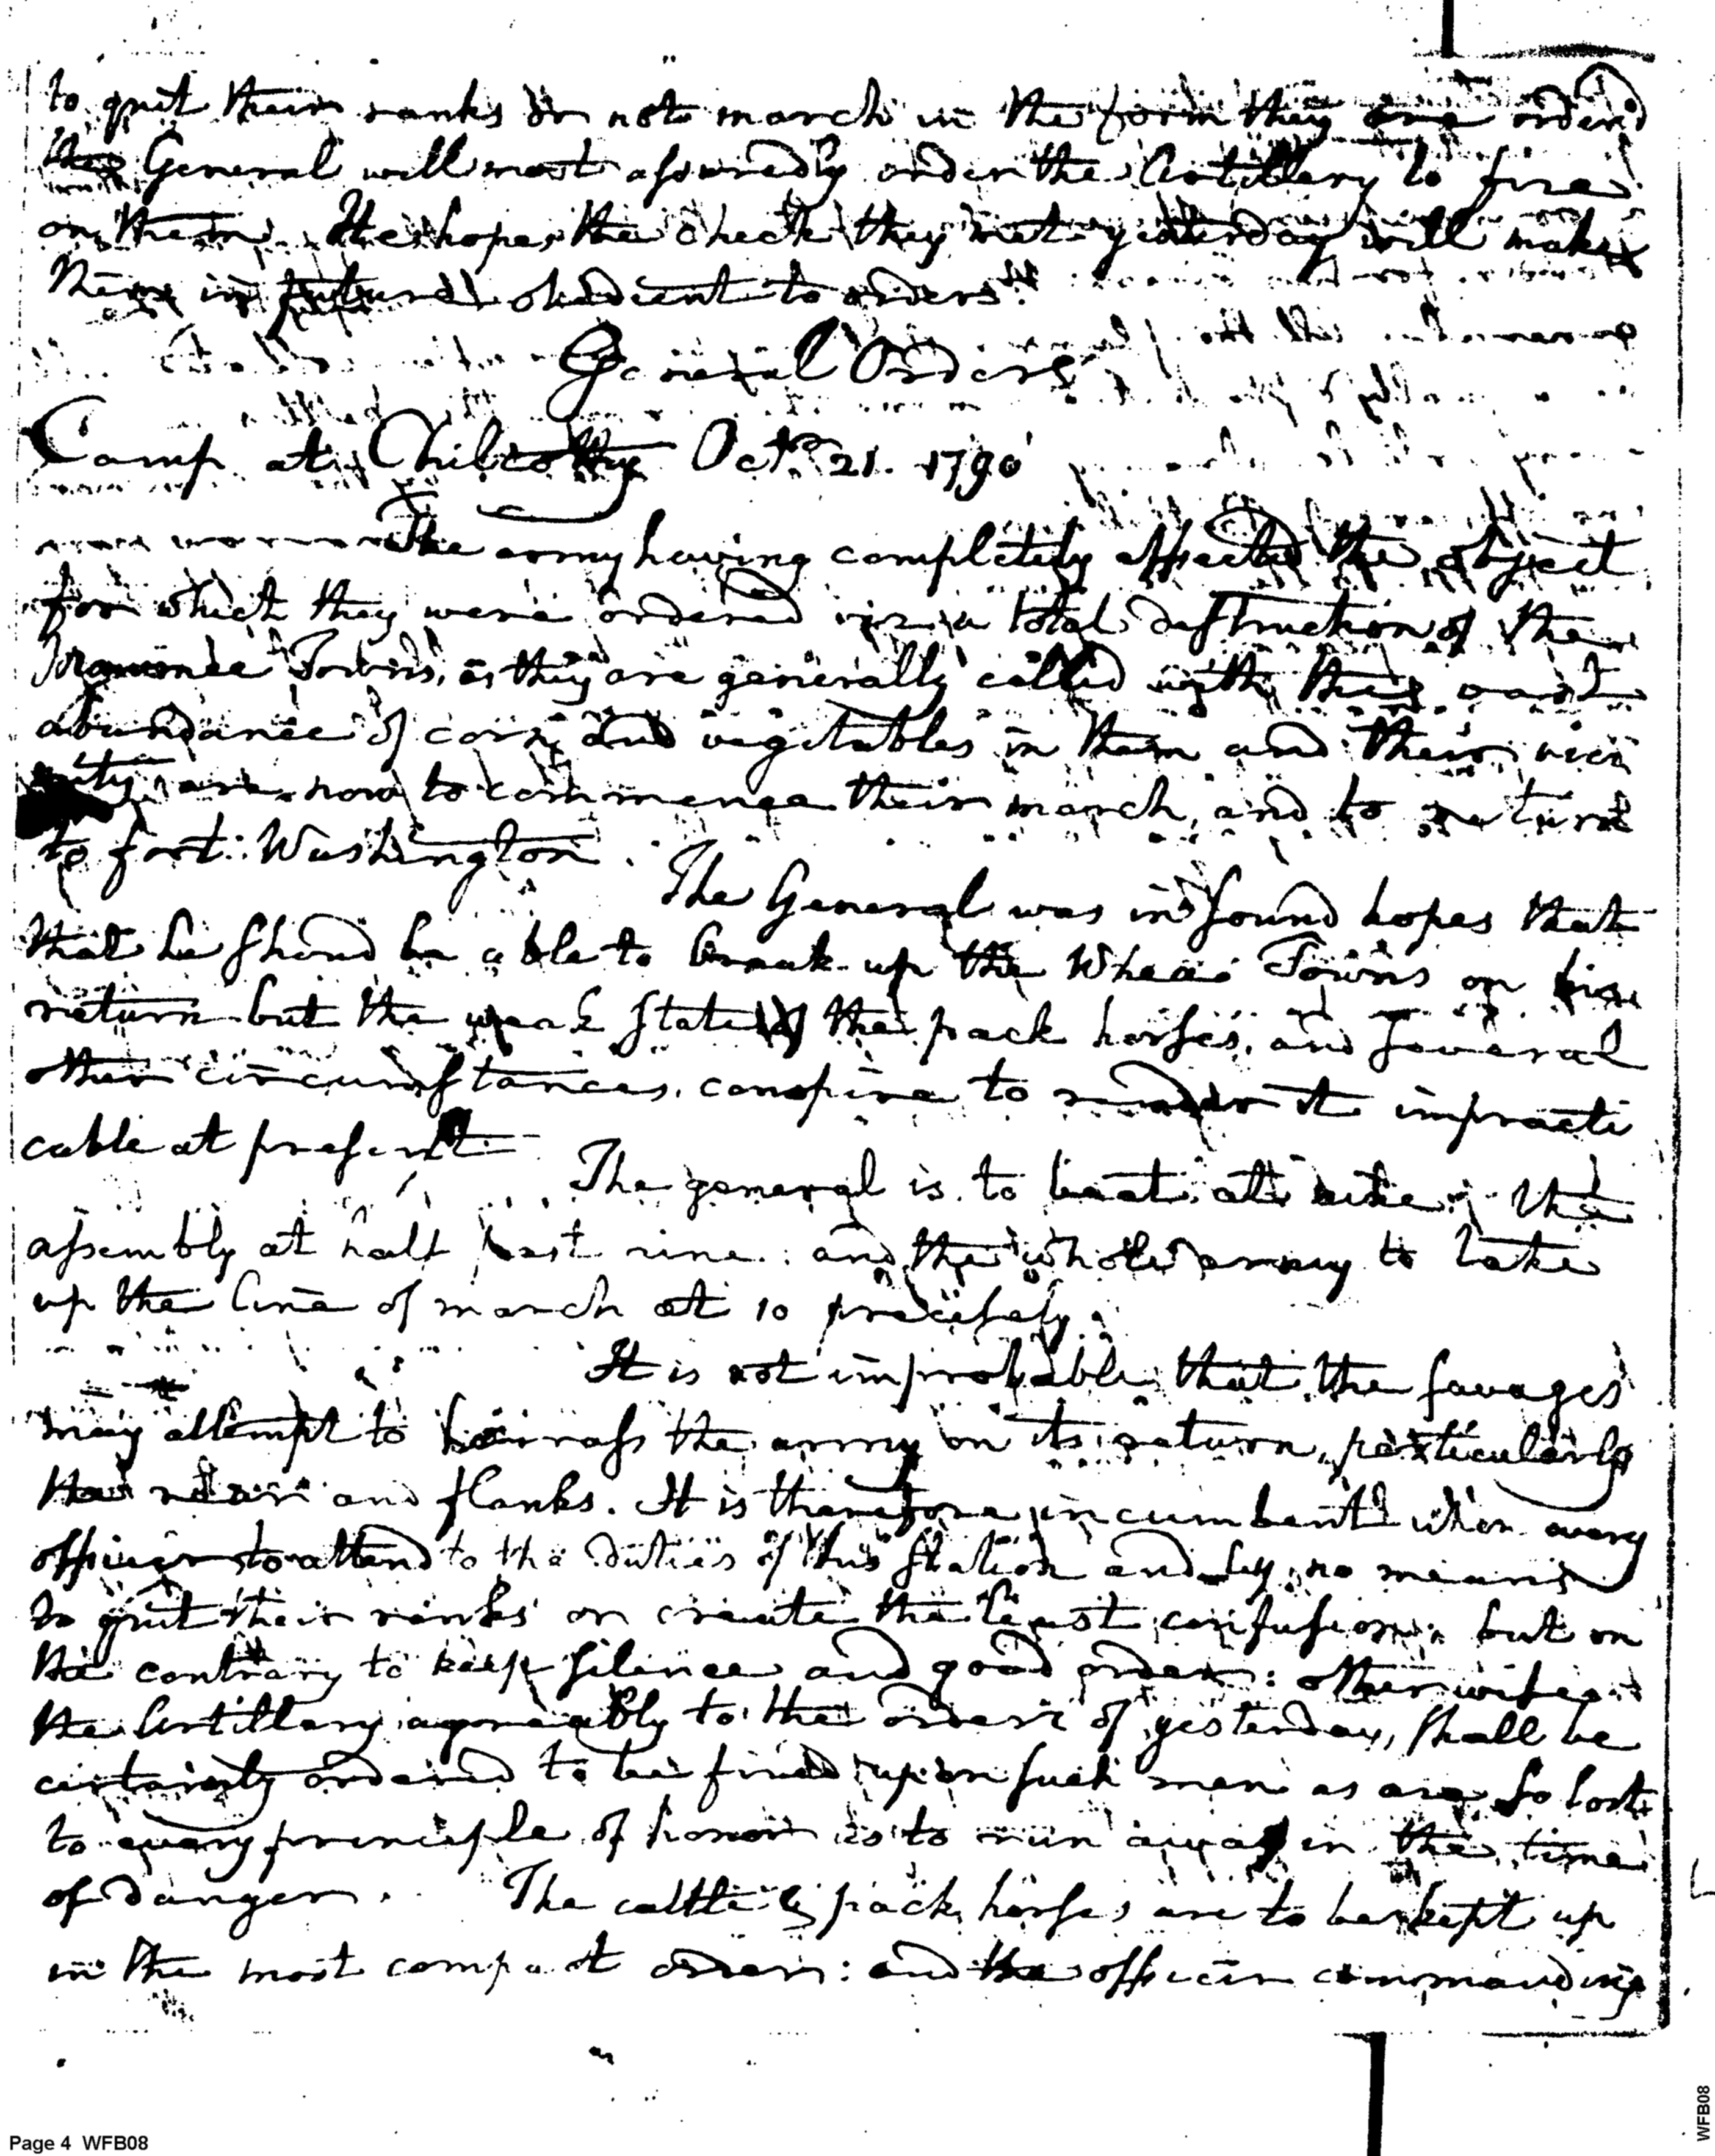 to quit their ranks or not march in the form they are ordered
the General will most assuredly order the Artillery to fire
on them. He hopes the check they met yesterday will make
them in future obedient to orders"
General Orders
Camp at Chilcothy Octr. 21. 1790
The army having completely effected the object
for which they were ordered viz a total destruction of the
Maumee Towns, as they are generally called with the vast
abundance of corn and vegitables in them and their vici
nity are now to commence their march, and to return
to fort Washington.
The General was in found hopes that
that he shoud be able to break up the Whea Towns on his
return but the weak state of the pack horses, and several
other circumstances, conspire to render it impracti
cable at present
The general is to beat at nine; the
assembly at half past nine: and the whole army to take
up the line of march at 10 precisely.
It is not improbable that the savages
may attempt to harrass the army on its return, particularly
the rear and flanks. It is therefore incumbent upon every
officer to attend to the duties of his station and by no means
to quit their ranks or create the least confusion: but on
the contrary to keep silence and good order: otherwise
the Artillery agreeably to the orders of yesterday, shall be
certainly ordered to be fired upon such men as are so lost
to every principle of honor as to run away in the time
of danger. The cattle & pack horses are to be kept up
in the most compact order: and the officer commanding
Page 4 WFB08
WFB08